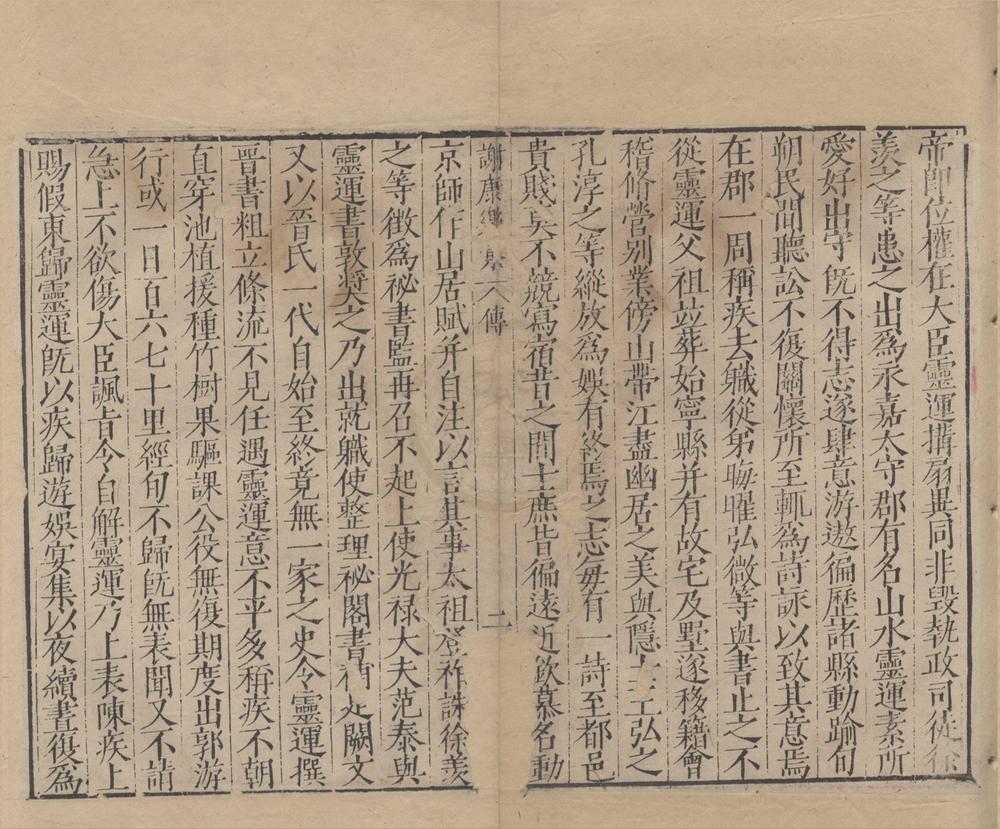 帝即位權在大臣靈運搆扇異同非毀執政司徒徐
羨之等患之出為永嘉太守郡有名山水靈運素所
愛好出守旣不得志遂肆意游遨徧歷諸縣動踰旬
朔民間聽訟不復關懷所至輒為詩詠以致其意焉
在郡一周稱疾去職從弟晦曜弘微等與書止之不
從靈運父祖竝葬始寧縣并有故宅及墅遂移籍會
稽脩營别業傍山帶江盡幽居之美與隱士王弘之
孔淳之等縱放為娛有終焉之志每有一詩至都邑
貴賤莫不競寫宿昔之間士庶皆徧遠近欽慕名動
謝康樂集 本傳 二
京師作山居賦并自注以言其事太祖登祚誅徐羨
之等徵為祕書監再召不起上使光祿大夫范泰與
靈運書敦奬之乃出就職使整理祕閣書補足闕文
又以晉氏一代自始至終竟無一家之史令靈運撰
晉書粗立條流不見任遇靈運意不平多稱疾不朝
直穿池植援種竹樹果驅課公役無復期度出郭游
行或一日百六七十里經旬不歸旣無表聞又不請
急上不欲傷大臣諷旨令自解靈運乃上表陳疾上
賜假東歸靈運旣以疾歸遊娛宴集以夜續晝復為